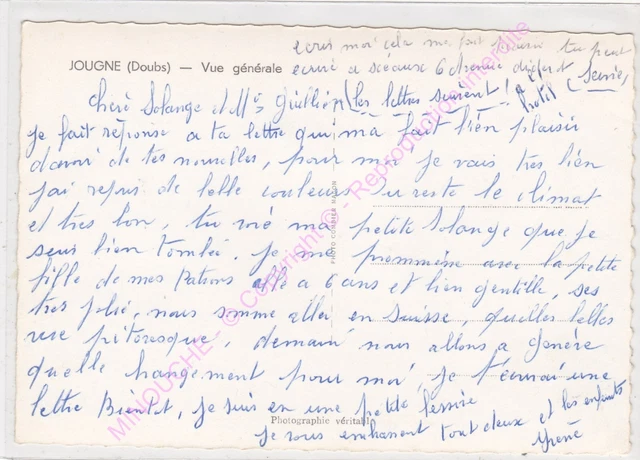 ecris moi cela me fait plaisir tu peut
JOUGNE (Doubs) — Vue générale
ecrire a sceaux 6 Avenue
(Seine)
Cheré Solange et Mrs
(les lettres suivent)
je fait reponse a ta lettre qui ma fait bien plaisir
d'avoir de tes nouvelles, pour moi je vais tres bien
j'ai repris de belle couleurs du reste le climat
et tres bon, tu voie ma petite Solange que je
suis bien tombée, je me promméne avec la petite
fille de mes Patrons elle a 6 ans et bien gentille, ses
tres jolie, nous somme aller en Suisse, quelles belles
vue pitoresque, demain nous allons a Genève
quelle changement pour moi, je t'ecrirai une
lettre Bientot, je suis en une petite
Photographie véritable
je vous embrassent tout deux et les enfants
PHOTO COMBIER MACON
MINOUCHE - © Copyright © - Reproduction interdite